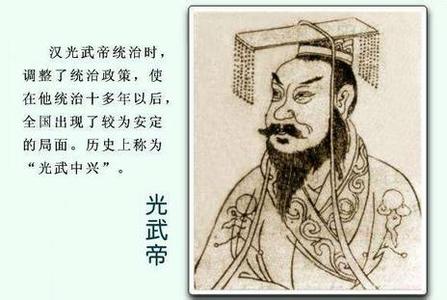 汉光武帝统治时，
调整了统治政策，使
在他统治十多年以后，
全国出现了较为安定
的局面。历史上称为
“光武中兴”。
光武帝